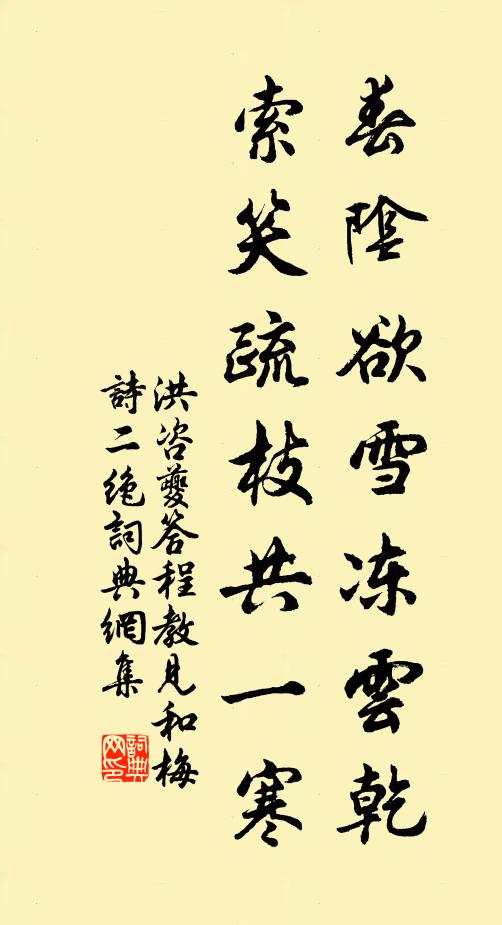 春陰欲雪冻雲乾
索笑疏枝共一寒
洪咨夔答程教見和梅
詩二絶詞典網集
詞典网印